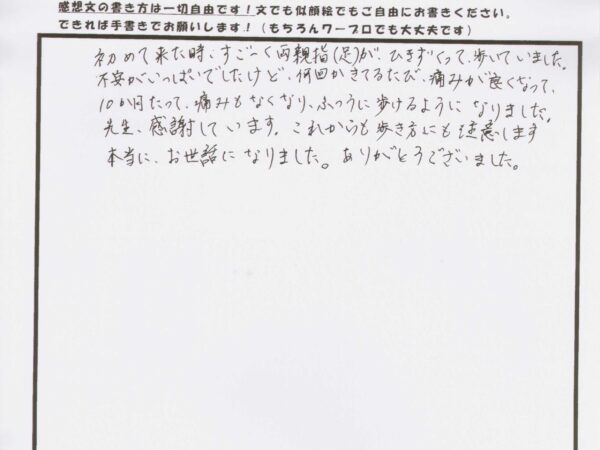 感想文の書き方は一切自由です！文でも似顔絵でもご自由にお書きください。
できれば手書きでお願いします！（もちろんワープロでも大丈夫です）
初めて来た時、すご〜く両親指(足)が、ひきずぐって、歩いていました。
不安がいっぱいでしたけど、何回かきてるたび、痛みが良くなって、
10か月たって、痛みもなくなり、ふつうに歩けるように なりました。
先生、感謝しています。これからも歩き方にも注意します
本当に、お世話になりました。ありがとうございました。